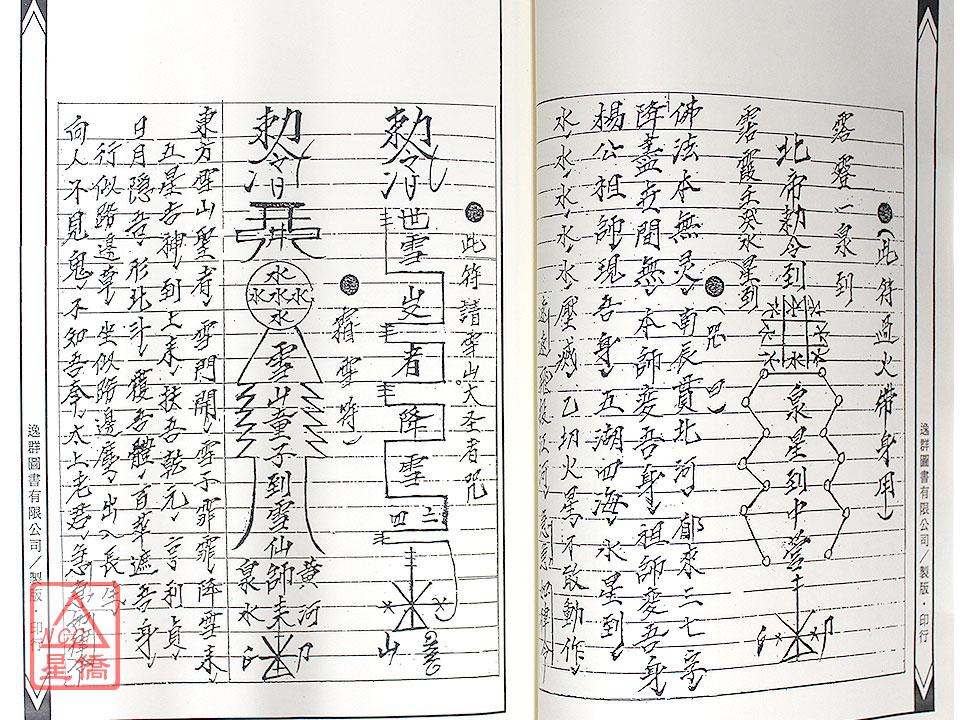 (此符過火帶身用)
一泉到
北帝勅令到
水
泉星到中營
霞壬癸水星到
(咒曰)
佛法本無灵，南辰貫北河，郁來三七字，
降盡世間無，本師变吾身，祖師变吾身，
楊公祖師現吾身，五湖四海水星到，
水，水，水，水，水，壓滅乙切火馬，不敢動作，
逸群圖書有限公司／製版・印行
此符請雪山大圣者咒
勅令
雪山
者降雪
四二
山
雪符)
勅令
井
水水水水水
雪山童子到雪仙師
黃河
泉水
東方雪山聖者，雪門開，雪子霏霏降雪來，
五星吉神，到上來，扶吾乾元，亨利貞，
日月隱吾形北斗，護吾體，百草遮吾身，
行似路邊草，坐似路邊塵，出入長生，
向人不見鬼，不知吾奉，太上老君，急急如律令
逸群圖書有限公司／製版・印行
NCC
星僑